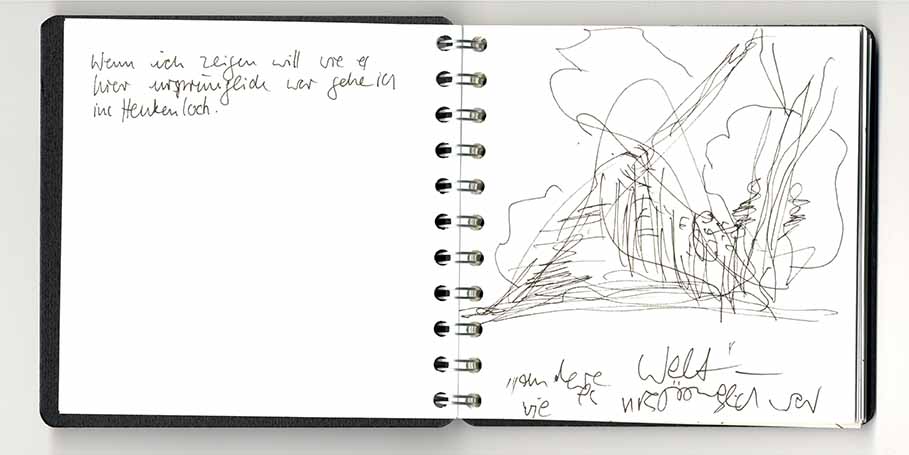 Wenn ich zeigen will wie es
hier ursprünglich war gehe ich
ins Henkenloch.
„andere Welt“ –
wie es ursprünglich war